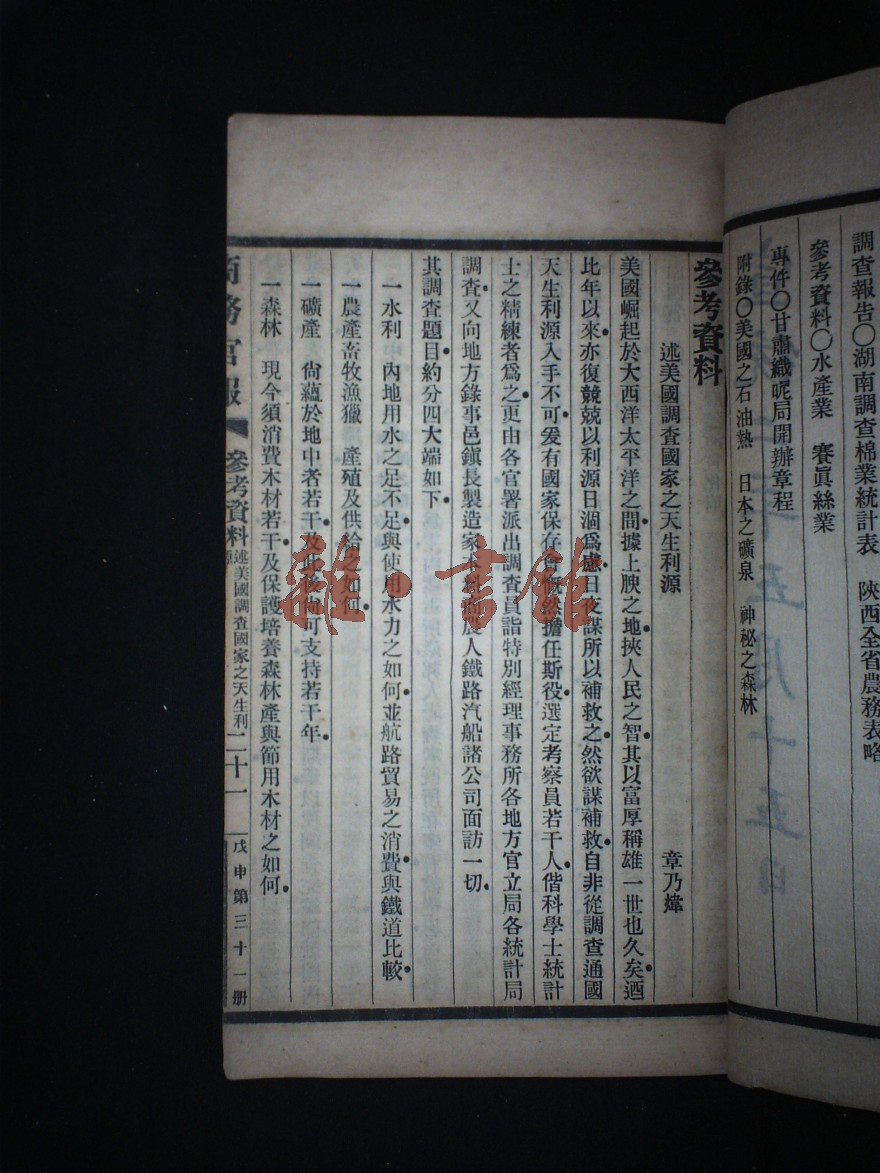 調查報告〇湖南調查棉業統計表　陝西全省農務表略
參考資料〇水產業　賽眞絲業
專件〇甘肅織呢局開辦章程
附錄〇美國之石油熱　日本之礦泉　神秘之森林
參考資料
述美國調查國家之天生利源　章乃煒
美國崛起於大西洋太平洋之間據上腴之地挾人民之智其以富厚稱雄一世也久矣迺
比年以來亦復兢兢以利源日涸爲慮日夜謀所以補救之然欲謀補救自非從調查通國
天生利源入手不可爰有國家保存會慨然擔任斯役選定考察員若干人偕科學士統計
士之精練者爲之更由各官署派出調查員詣特別經理事務所各地方官立局各統計局
調查又向地方錄事邑鎭長製造家木料商農人鐵路汽船諸公司面訪一切
其調查題目約分四大端如下
一水利　內地用水之足不足與使用水力之如何並航路貿易之消費與鐵道比較
一農產畜牧漁獵　產殖及供給之如何
一礦產　尙蘊於地中者若干及此後尙可支持若干年
一森林　現今須消費木材若干及保護培養森林產與節用木材之如何
商務官報　參考資料　述美國調查國家之天生利源　二十一　戊申第三十一册
雜·書館